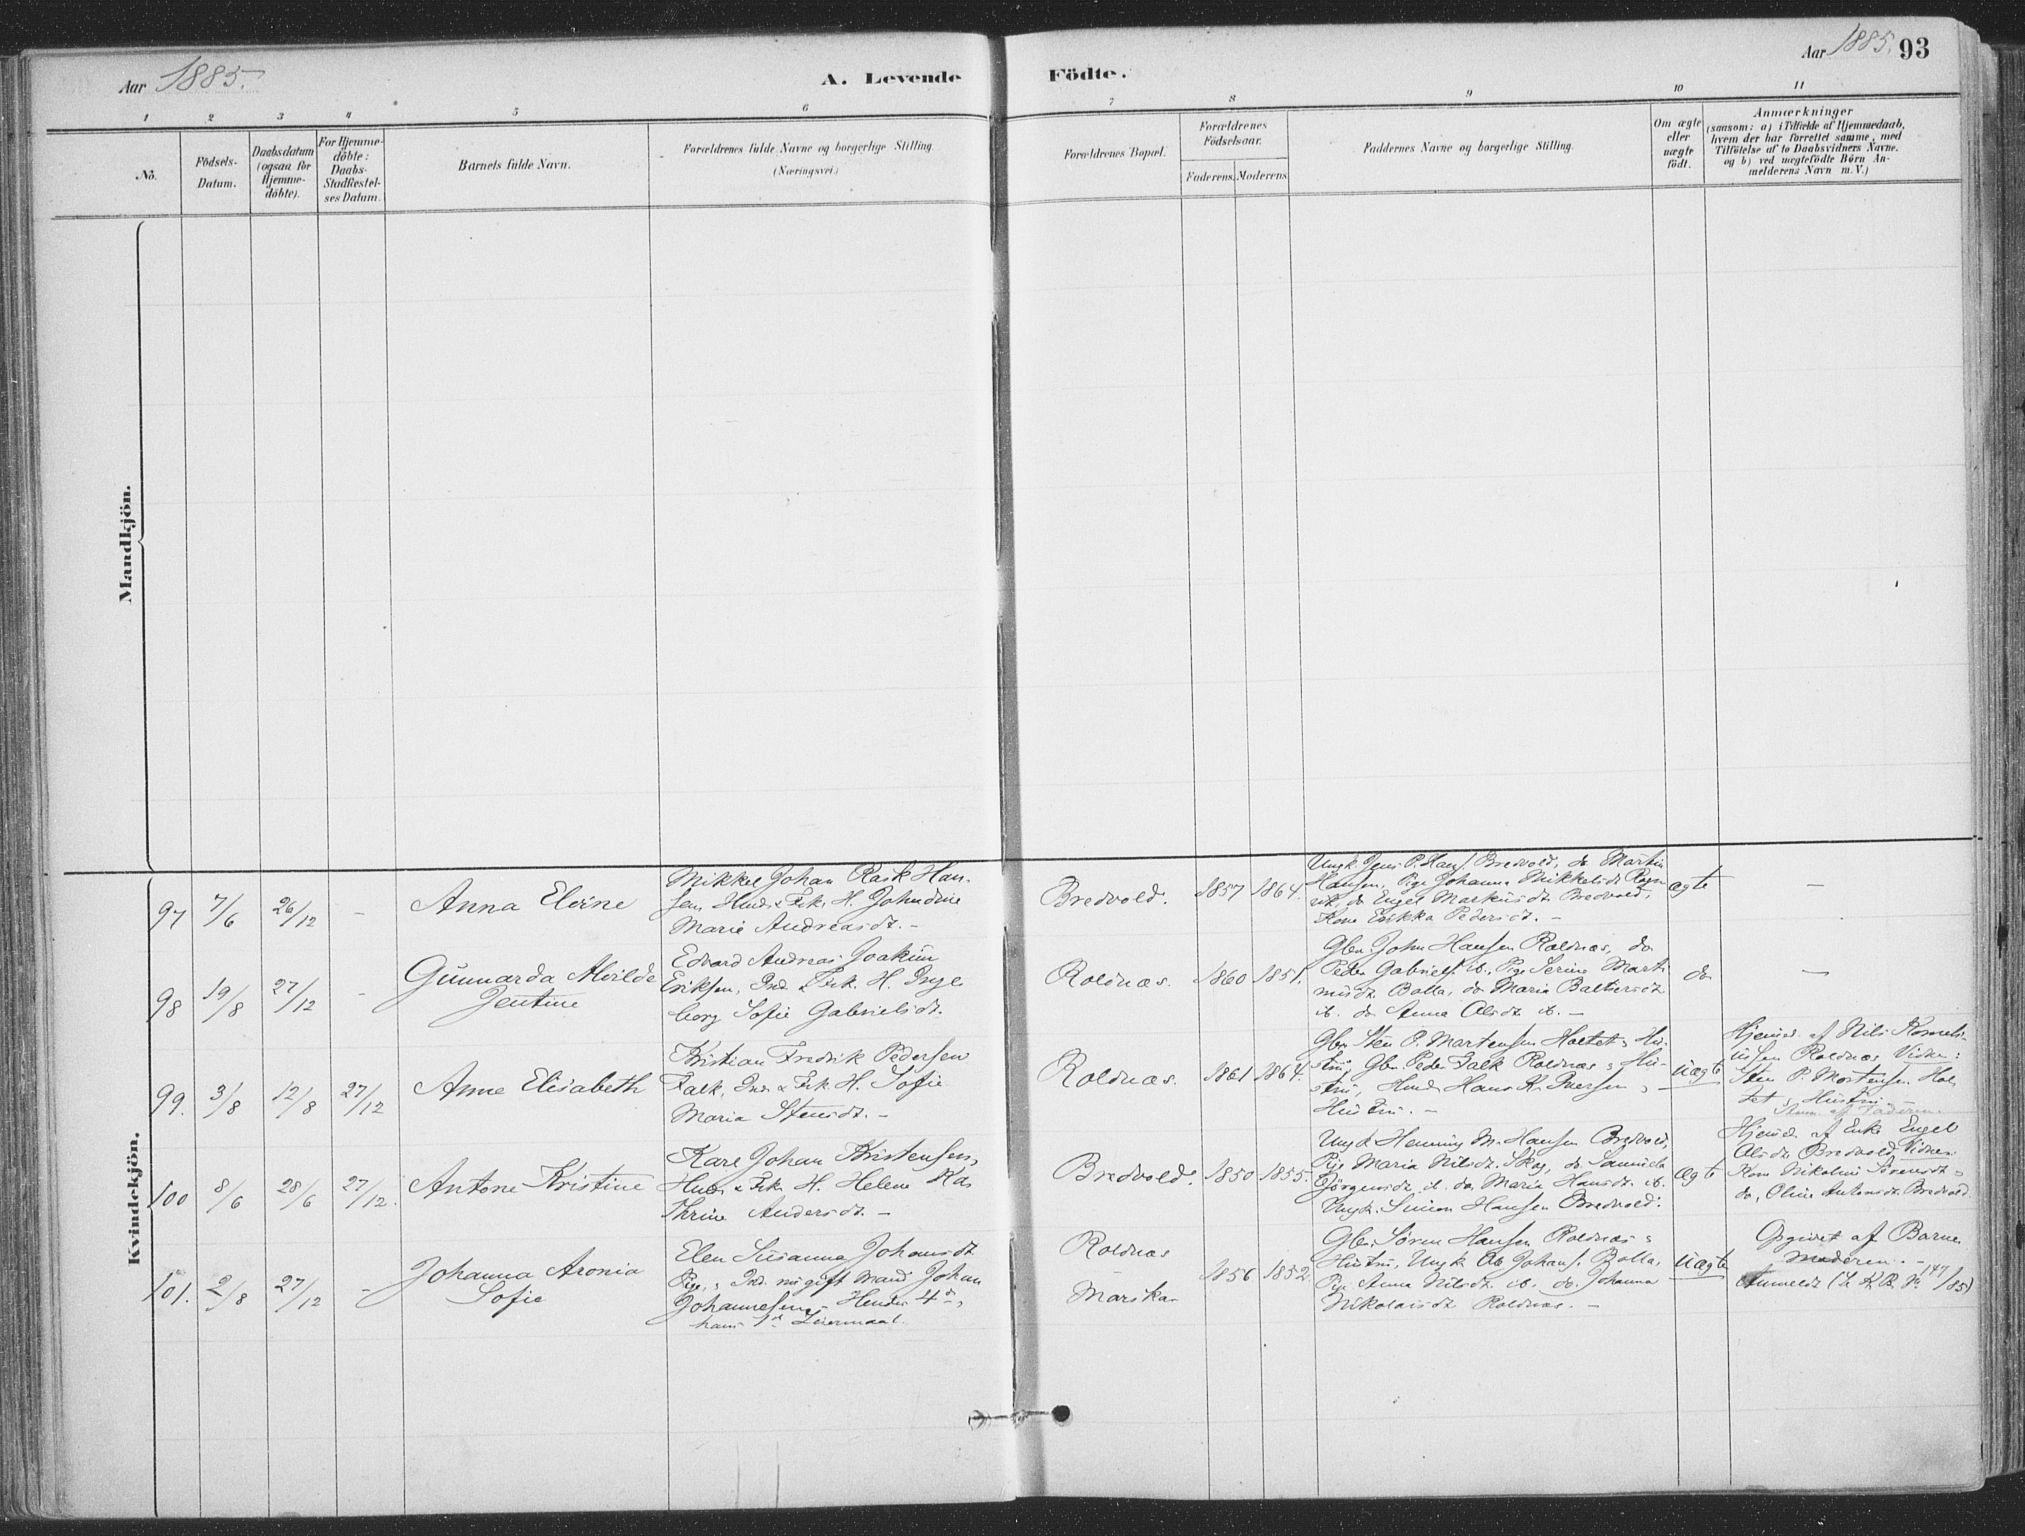 Aar 1885.
A. Levende Födte.
Aar 1885. 93
1 2 3 4 5 6 7 8 9 10 11
No.
Födsels-
Datum.
Daabsdatum
(ogsaa för
Hjemme-
döbte).
For Hjemme-
döbte:
Daabs-
Stadfæstel-
ses Datum.
Barnets fulde Navn.
Forældrenes fulde Navne og borgerlige Stilling.
(Næringsvei.)
Forældrenes Bopæl.
Forældrenes
Födselsaar.
Faderens. Moderens.
Faddernes Navne og borgerlige Stilling.
Om ægte
eller
uægte
födt.
Anmærkninger
(saasom: a) i Tilfælde af Hjemmedaab,
hvem der har forrettet samme, med
Tilföielse af to Daabsvidners Navne.
og b) ved uægtefödte Börn An-
melderens Navn m. V.)
Mandkjön.
Kvindekjön.
97 7/6 26/12 –
Anna Elvine
Mikkel Johan Rask Han-
sen, Hmd. & Fisk. H. Johndine
Marie Andreasdt. –
Bredvold. 1857 1864.
Ungk. Jens P. Hans. Bredvold, do Martin
Hansen, Pige Johanna Mikkelsdt
do Engel Markusdt. Bredvold,
Kone Erikka Pedersdt. –
ægte –
98 19/8 27/12 –
Gunnarda Alvilde
Jentine
Edvard Andreas Joakim
Eriksen, Ind. & Fisk. H. Inge
borg Sofie Gabrielsdt.
Roldnæs. 1860 1851.
Gbr. John Hansen Roldnæs, do
Peder Gabriels. ib., Pige Serine Mart
insdt. Balla, do Maria Baltsersdt
ib. do Anna Olsdt ib. –
do –
99. 3/8 12/8 27/12
Anne Elisabeth
Kristian Fredrik Pedersen
Falk, Ind. & Fisk. H. Sofie
Maria Stensdt. –
Roldnæs. 1861 1864.
Gbr. Sten P. Martensen Holtet, Hu-
stru, Gbr. Peder Falk Roldnæs, Hu-
stru, Hmd. Hans K. Iversen,
Hustru. –
uægte
Hjemd. af Nils Korneli-
ussen Roldnæs, Vidner:
Sten P. Mortensen Hol
tet, Hustru –
Anm. af Faderen.
100 8/6 28/6 27/12.
Antone Kristine
Karl Johan Kristensen,
Hmd. & Fisk. H. Helene Ka
thrine Andersdt. –
Bredvold. 1850 1855.
Ungk. Henning M. Hansen Bredvold,
Pige Maria Nilsdt. Skog, do
Jörgensdt. ib. do Maria Hansdt. ib.
Ungk. Simon Hansen Bredvold.
ægte
Hjemd. af Enke Engel
Olsdt. Bredvold, Vidner:
Kone Nikoline Sörensdt,
do, Oline Antonsdt. Bredvold.
101. 2/8 27/12 –
Johanna Aronia
Sofie
Elen Susanna Johansdt
Pige, Ind. ugift Mand Johan
Johannesen – Hendes 4de,
hans 1ste Leiermaal.
Roldnæs
–
Marska
1856 1852.
Gbr. Sören Hansen Roldnæs,
Hustru, Ungk. Johans. Balla,
Pige Anna Nilsdt. ib. do Johanna
Nikolaisdt. Roldnæs. –
uægte
Opgivet af Barne
moderen. –
Anmeldt ( K. B. Nr. 147/85)